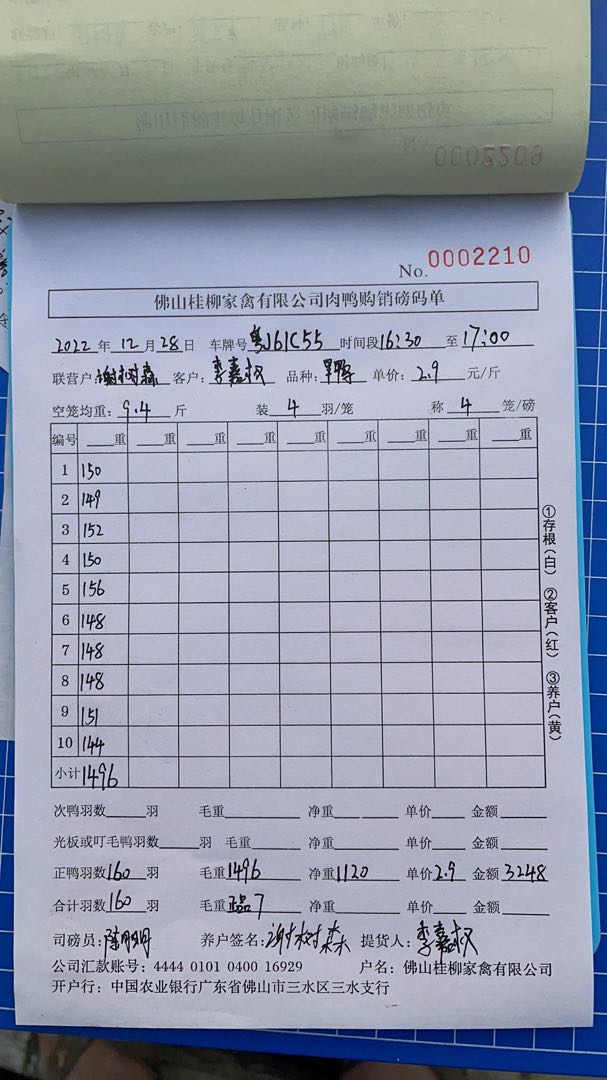 0002209
No. 0002210
佛山桂柳家禽有限公司肉鸭购销磅码单
2022年12月28日 车牌号粤J61C55 时间段16:30至17:00
联营户:谢树森 客户:李嘉权 品种: 单价:2.9元/斤
空笼均重:9.4斤 装4羽/笼 称4笼/磅
编号 重 重 重 重 重 重 重 重 重
1 150
2 149
3 152
4 150
5 156
6 148
7 148
8 148
9 151
10 144
小计 1496
①存根(白) ②客户(红) ③养户(黄)
次鸭羽数 羽 毛重 净重 单价 金额
光板或叮毛鸭羽数 羽 毛重 净重 单价 金额
正鸭羽数160羽 毛重1496 净重1120 单价2.9 金额3248
合计羽数160羽 毛重 7 净重 单价 金额
司磅员: 养户签名:谢树森 提货人:李嘉权
公司汇款账号: 4444 0101 0400 16929 户名: 佛山桂柳家禽有限公司
开户行: 中国农业银行广东省佛山市三水区三水支行